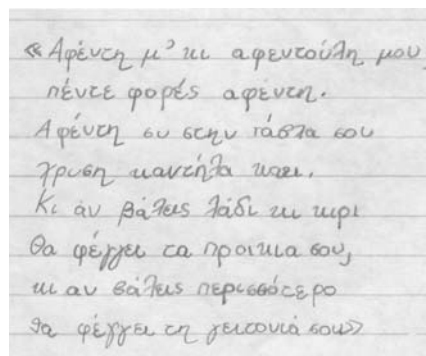 «Αφέντη μ' κι αφεντούλη μου,
πέντε φορές αφέντη.
Αφέντη συ στην τάβλα σου
χρυσή καντήλα καει.
Κι άν βάλεις λάδι κι κιρι
θα φέγγει τα προικια σου,
κι αν βάλεις περισσότερο
θα φέγγει τη γειτονιά σου»